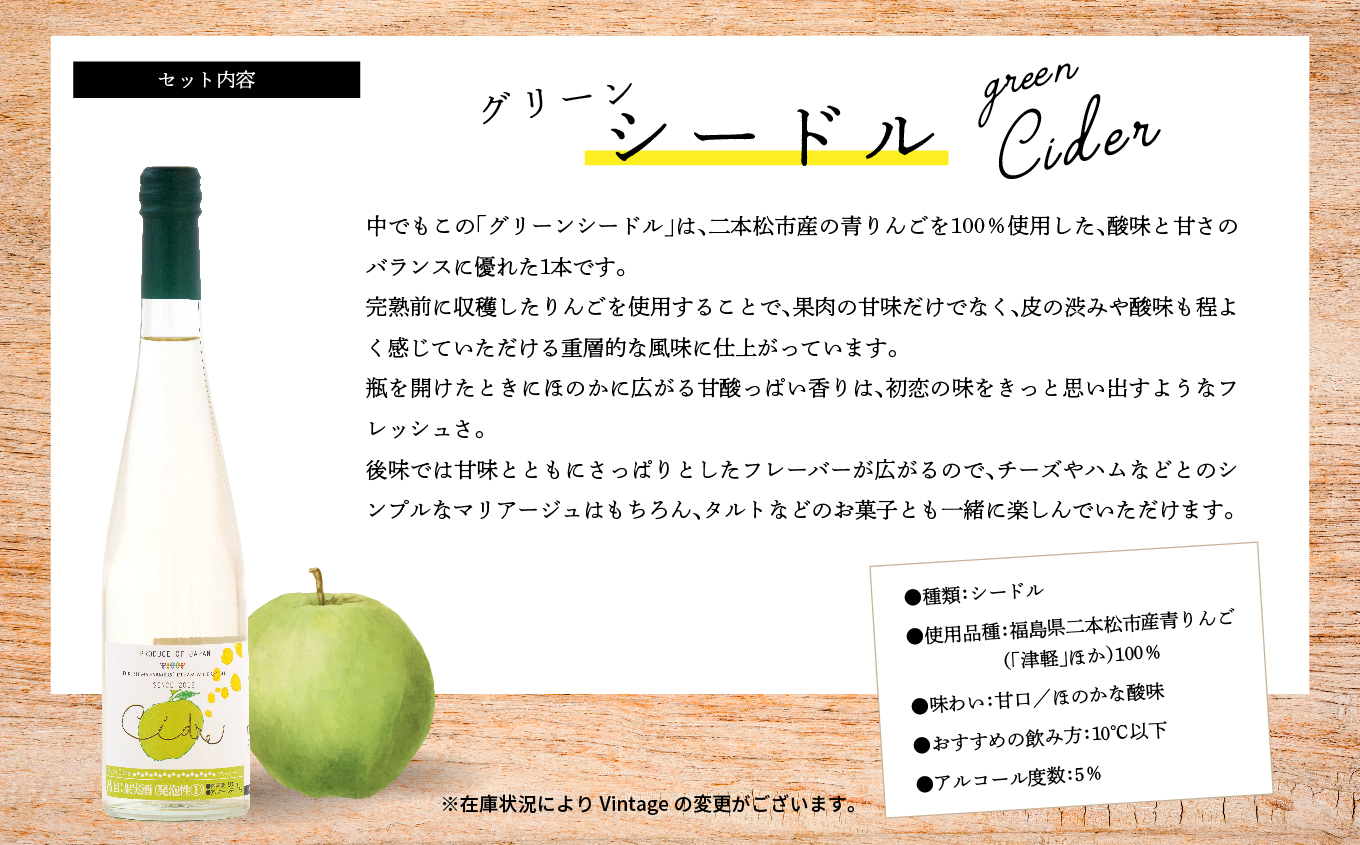 セット内容
グリーン
シードル
green
Cider
中でもこの「グリーンシードル」は、二本松市産の青りんごを100％使用した、酸味と甘さの
バランスに優れた1本です。
完熟前に収穫したりんごを使用することで、果肉の甘味だけでなく、皮の渋みや酸味も程よ
く感じていただける重層的な風味に仕上がっています。
瓶を開けたときにほのかに広がる甘酸っぱい香りは、初恋の味をきっと思い出すようなフ
レッシュさ。
後味では甘味とともにさっぱりとしたフレーバーが広がるので、チーズやハムなどとのシ
ンプルなマリアージュはもちろん、タルトなどのお菓子とも一緒に楽しんでいただけます。
●種類：シードル
●使用品種：福島県二本松市産青りんご
（「津軽」ほか）100％
●味わい：甘口／ほのかな酸味
●おすすめの飲み方：10℃以下
●アルコール度数：5％
PRODUCE OF JAPAN
SINCE 2012
Cidre
果実酒（発泡性①）
※在庫状況により Vintage の変更がございます。